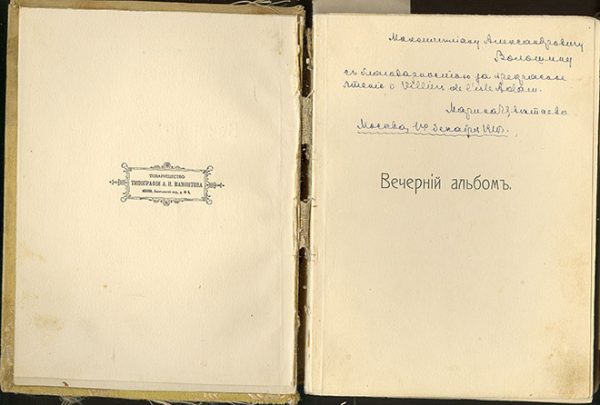 ТОВАРИЩЕСТВО
ТИПОГРАФІИ А. И. МАМОНТОВА
Максимиліану Александровичу
Волошину
съ благодарностью за прекрасное
чтеніе о Villiers de l'isle Adam.
Марина Цвѣтаева
Москва, 1го декабря 1910г.
Вечерній альбомъ.